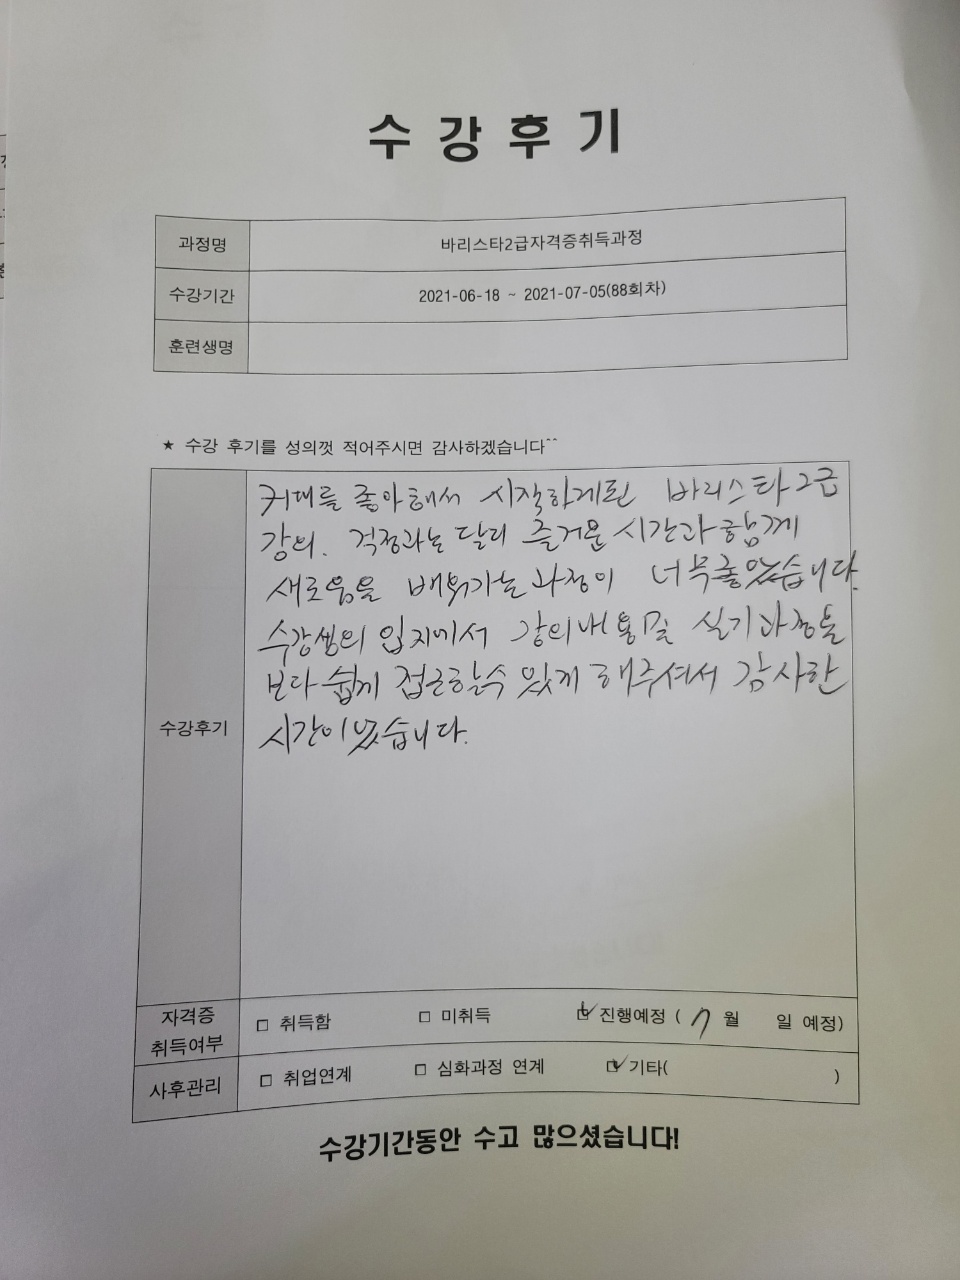 수 강 후 기
과정명 바리스타2급자격증취득과정
수강기간 2021-06-18 ~ 2021-07-05(88회차)
훈련생명
★ 수강 후기를 성의껏 적어주시면 감사하겠습니다^^
수강후기
커피를 좋아해서 시작하게된 바리스타2급
강의. 걱정과는 달리 즐거운 시간과 함께
새로움을 배워가는 과정이 너무좋았습니다.
수강생의 입지에서 강의내용및 실기과정을
보다 쉽게 접근할수 있게 해주셔서 감사한
시간이었습니다.
자격증
취득여부
□ 취득함 □ 미취득 ☑ 진행예정 ( 7 월 일 예정)
사후관리 □ 취업연계 □ 심화과정 연계 ☑ 기타( )
수강기간동안 수고 많으셨습니다!